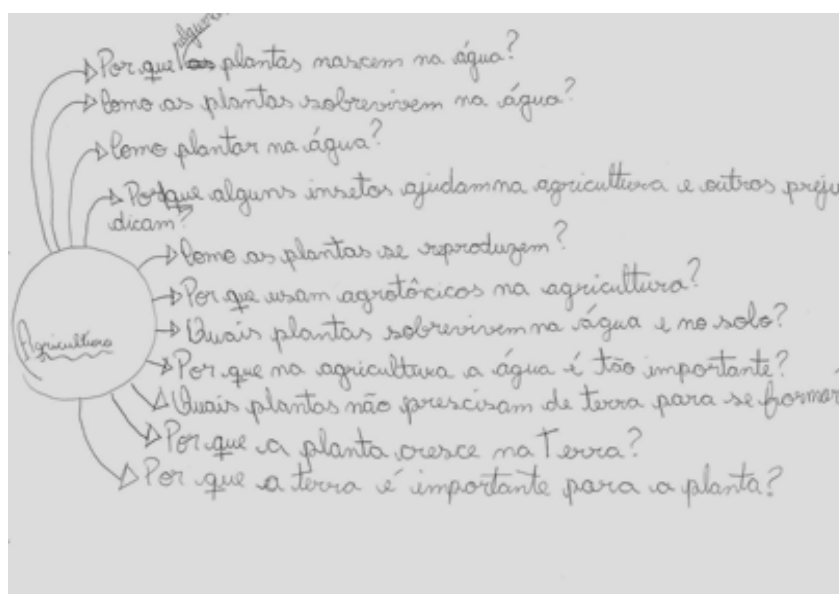 algumas
Por que as plantas nascem na água?
Como as plantas sobrevivem na água?
Como plantar na água?
Por que alguns insetos ajudam na agricultura e outros preju
dicam?
Como as plantas se reproduzem?
Por que usam agrotóxicos na agricultura?
Quais plantas sobrevivem na água e no solo?
Agricultura
Por que na agricultura a água é tão importante?
Quais plantas não prescisam de terra para se formar
Por que a planta cresce na Terra?
Por que a terra é importante para a planta?